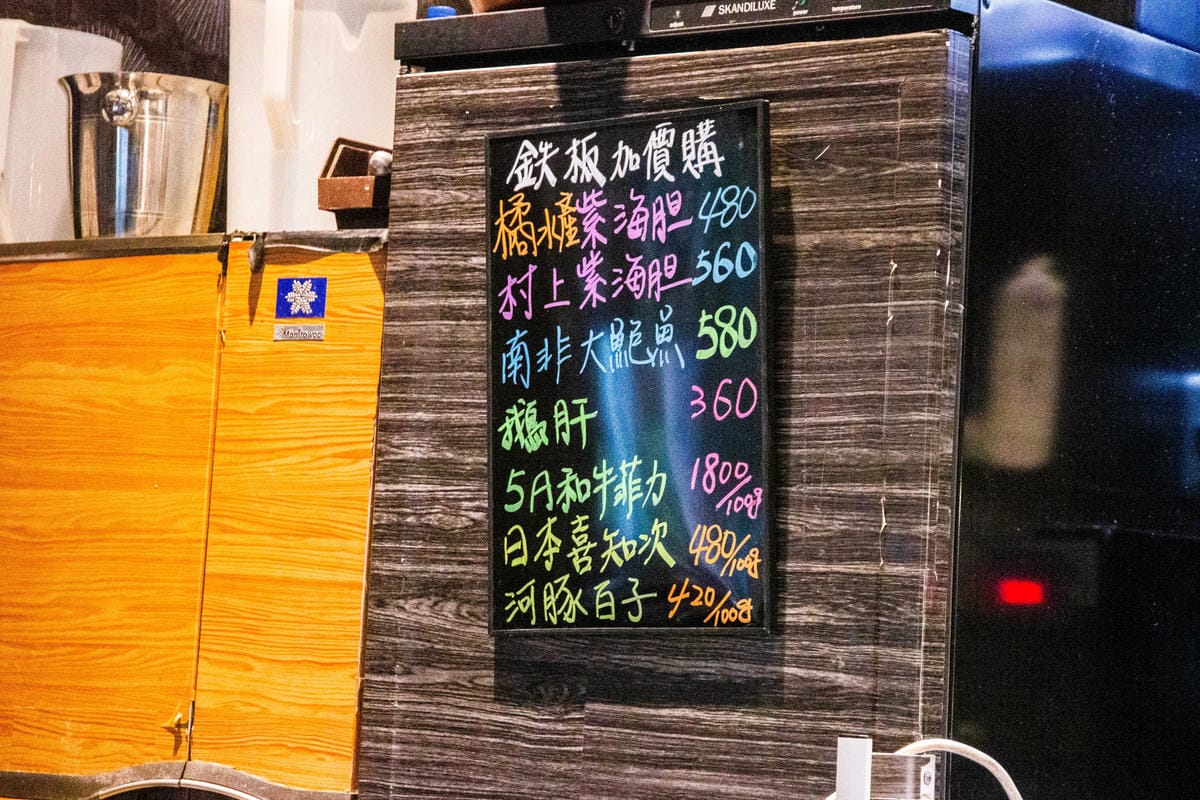 SKANDILUXE
adjust power temperature
Manitowoc
鉄板加價購
橘水爐紫海胆 480
村上紫海胆 560
南非大鮑魚 580
鵝肝 360
5A和牛菲力 1800/100g
日本喜知次 480/100g
河豚百子 420/100g